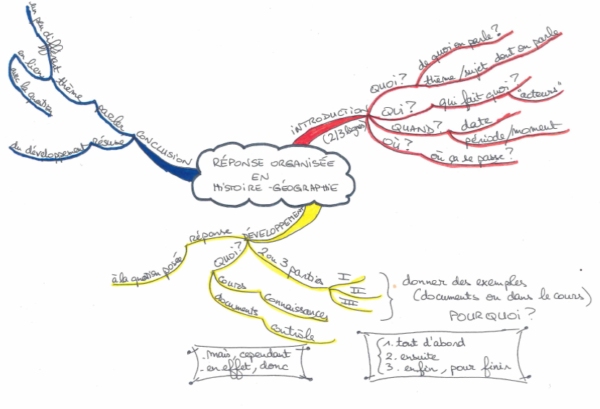 RÉPONSE ORGANISÉE
EN
HISTOIRE-GÉOGRAPHIE
INTRODUCTION
(2/3 lignes)
QUOI?
de quoi on parle?
thème/sujet dont on parle
QUI?
qui fait quoi?
"acteurs"
QUAND?
date
période/moment
OÙ?
où ça se passe?
DÉVELOPPEMENT
réponse
à la question posée
QUOI?
cours
connaissances
documents
contrôle
2 ou 3 parties
I
II
III
donner des exemples
(documents ou dans le cours)
POURQUOI?
- mais, cependant
- en effet, donc
1. tout d'abord
2. ensuite
3. enfin, pour finir
CONCLUSION
résumé
du développement
parler
thème
un peu différent
en lien
avec la question